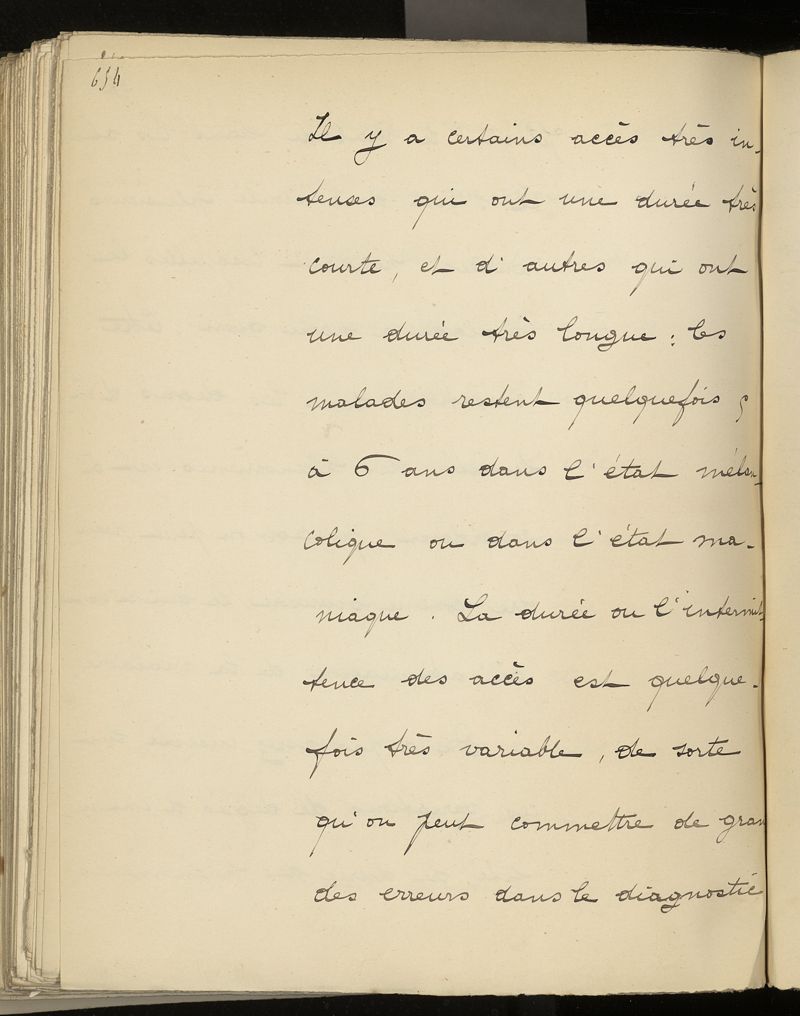 654
Il y a certains accès très in-
tenses qui ont une durée très
courte, et d'autres qui ont
une durée très longue ; les
malades restent quelquefois 5
à 6 ans dans l'état mélan-
colique ou dans l'état ma-
niaque. La durée ou l'intermit-
tence des accès est quelque-
fois très variable, de sorte
qu'on peut commettre de gran
des erreurs dans le diagnostic